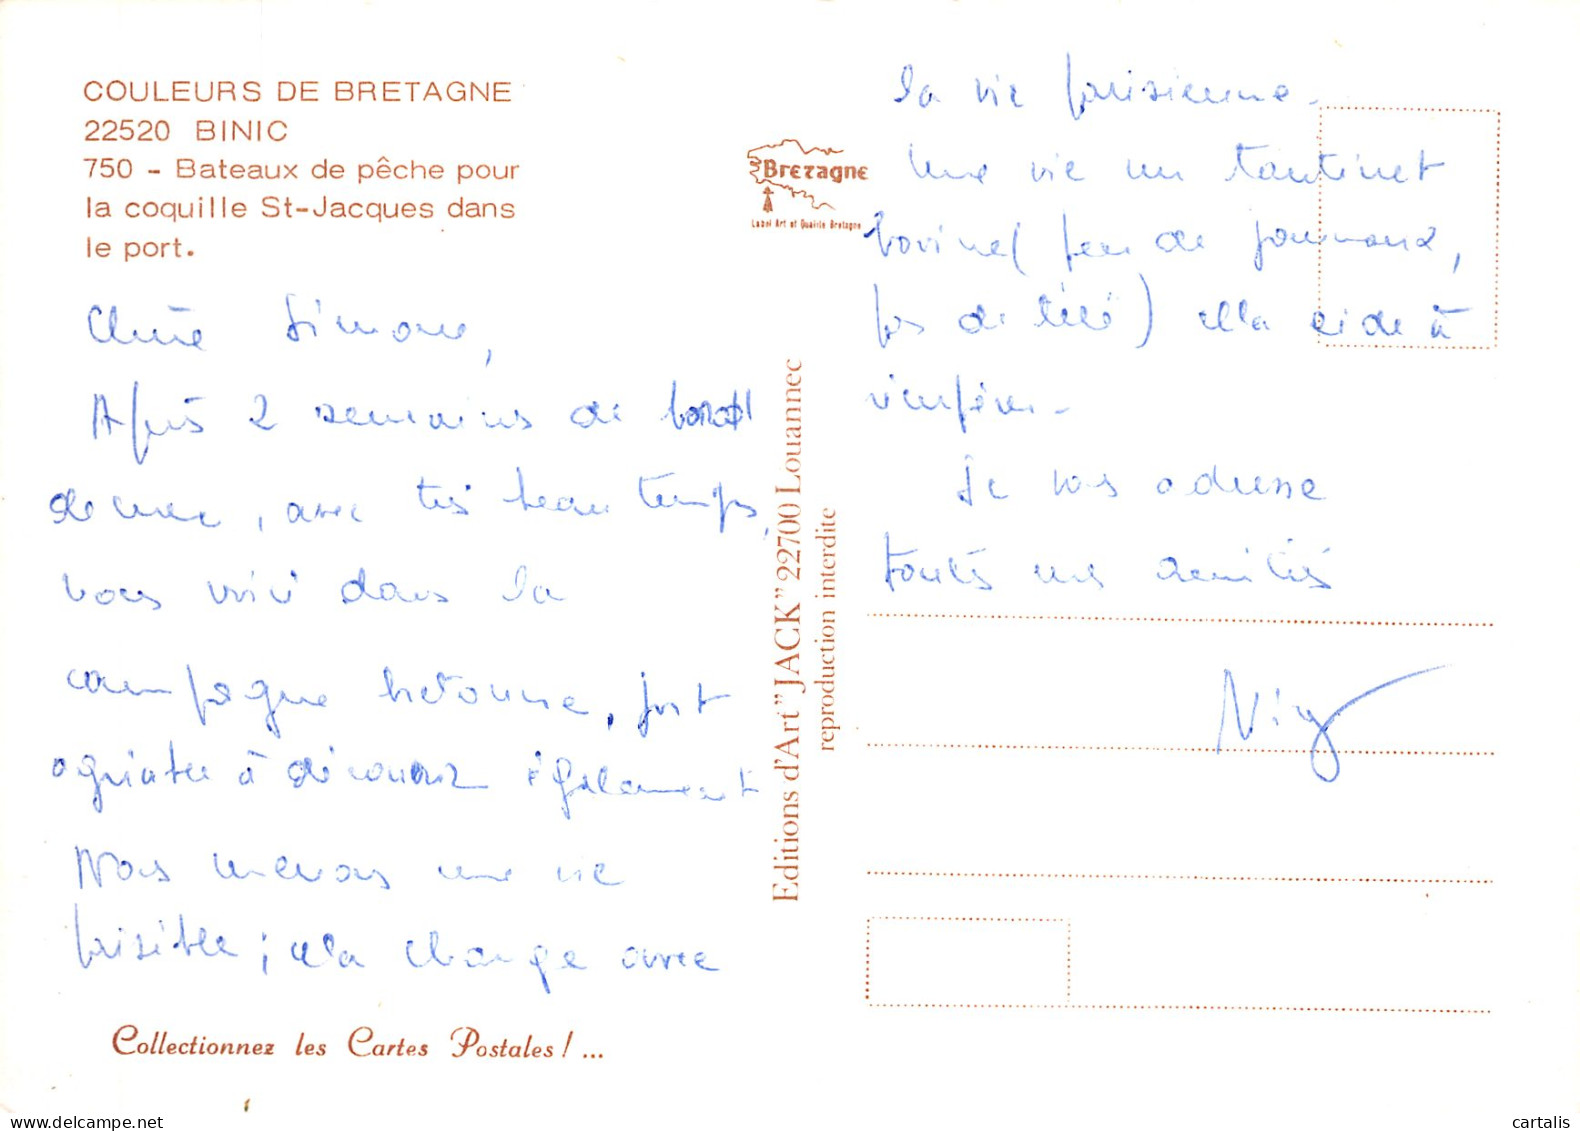 COULEURS DE BRETAGNE
22520 BINIC
750 - Bateaux de pêche pour
la coquille St-Jacques dans
le port.
Chère Simone,
Après 2 semaines de bord
de mer, avec très beau temps,
vous voici dans la
campagne bretonne, fort
agréable à découvrir également
Nous menons une vie
paisible ; cela change avec
Collectionnez les Cartes Postales ! ...
Bretagne
Label Art et Qualité Bretagne
Editions d'Art "JACK" 22700 Louannec
reproduction interdite
la vie parisienne.
Une vie un tantinet
bovine ( peu de journaux,
pas de télé ) cela aide à
Je vous adresse
toutes mes amitiés